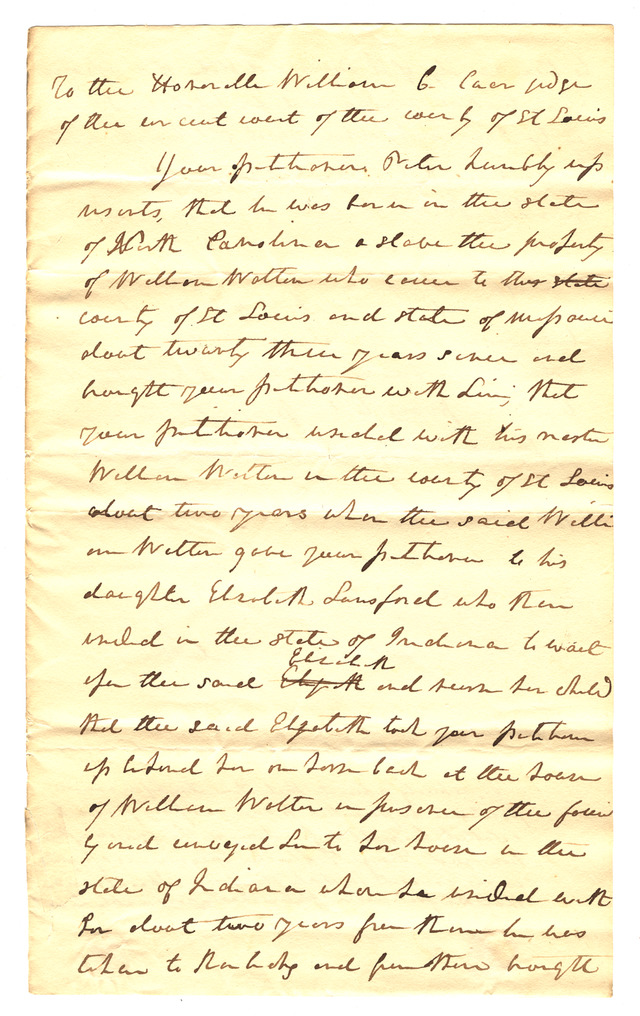 To the Honorable William C. Carr judge
of the circuit court of the county of St Louis
Your petitioner Peter humbly rep
resents, that he was born in the state
of North Carolina a slave the property
of William Wotten who came to this state
county of St Louis and state of Missouri
about twenty three years since and
brought your petitioner with him, that
your petitioner resided with his master
William Wotten in the county of St Louis
about two years when the said Willi
am Wotten gave your petitioner to his
daughter Elizabeth Lansford who then
resided in the state of Indiana to wait
Elizabeth
upon the said and nurse her child
that the said Elizabeth took your petitioner
up behind her on horse back at the house
of William Wotten in presence of the fami
ly and conveyed him to her house in the
state of Indiana where he resided with
her about two years from thence he was
taken to Kentucky and from there brought